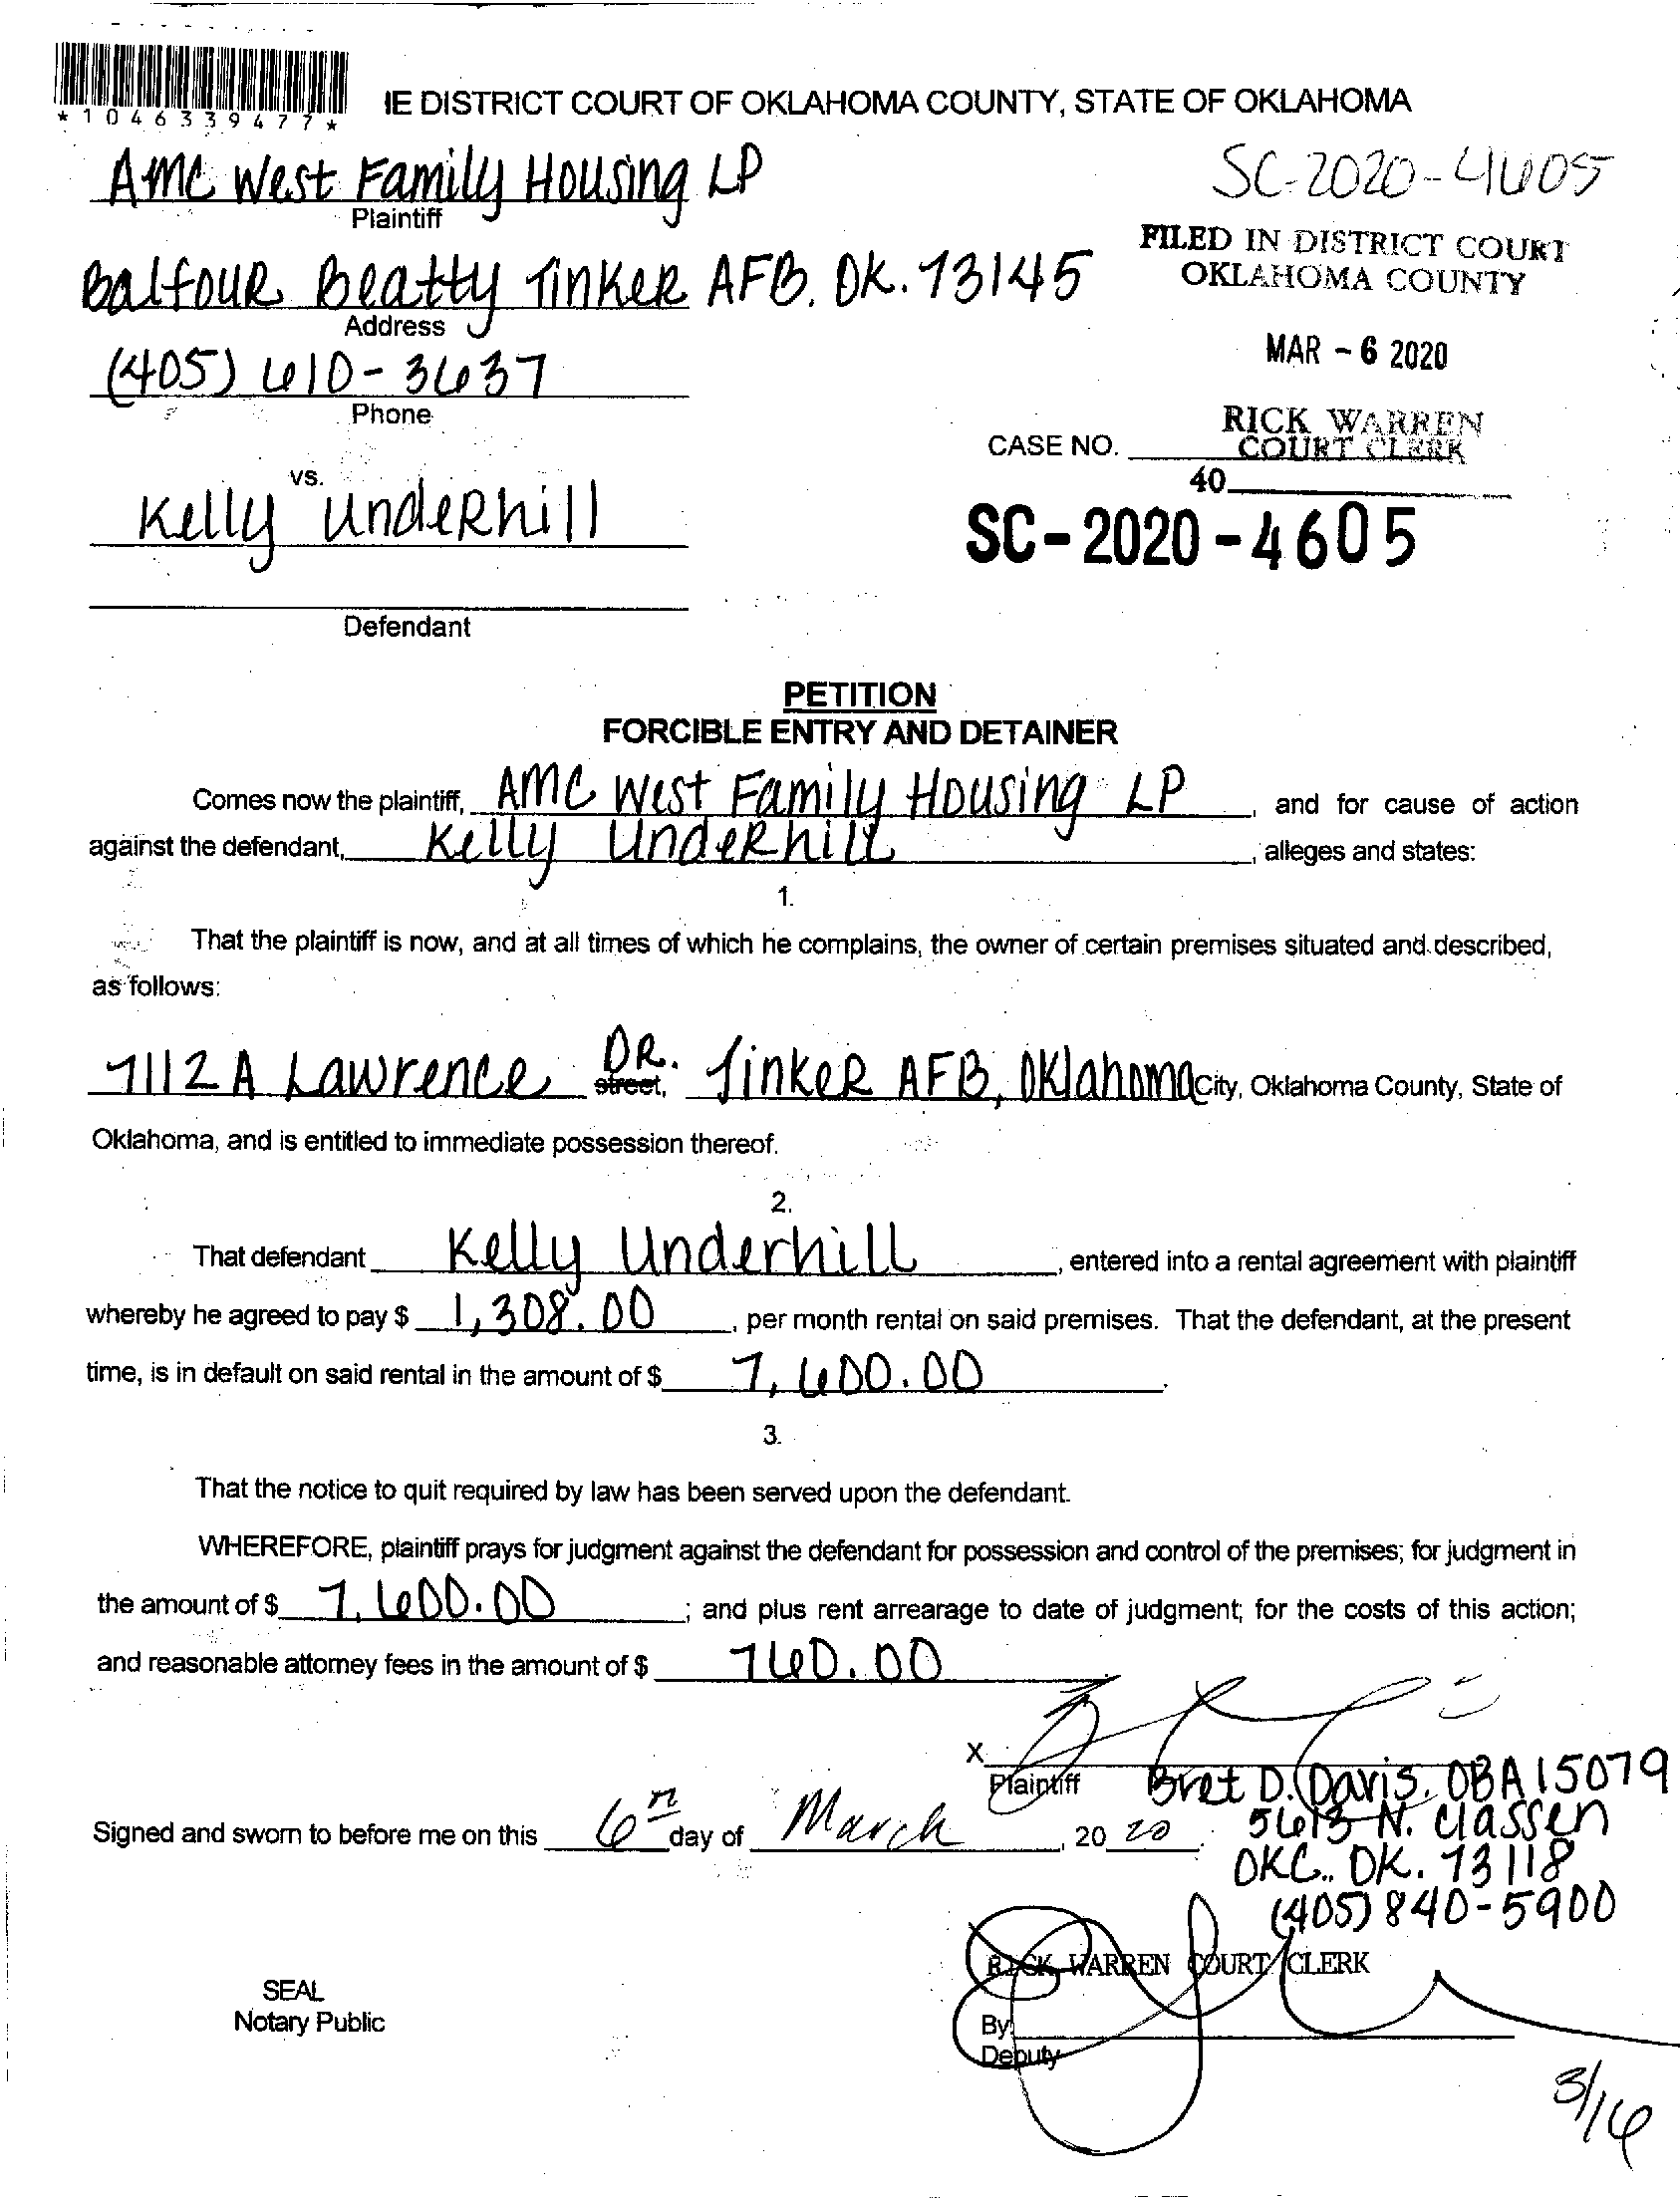 *1046339477*
IE DISTRICT COURT OF OKLAHOMA COUNTY, STATE OF OKLAHOMA
AMC West Family Housing LP
Plaintiff
SC-2020-4605
FILED IN DISTRICT COURT
OKLAHOMA COUNTY
Balfour Beatty Tinker AFB. OK. 73145
Address
MAR - 6 2020
(405) 610-3637
Phone
RICK WARREN
COURT CLERK
CASE NO.
40
vs.
Kelly Underhill
SC-2020-4605
Defendant
PETITION
FORCIBLE ENTRY AND DETAINER
Comes now the plaintiff, AMC West Family Housing LP, and for cause of action
against the defendant, Kelly Underhill, alleges and states:
1.
That the plaintiff is now, and at all times of which he complains, the owner of certain premises situated and described,
as follows:
7112 A Lawrence street, DR. Tinker AFB, Oklahoma City, Oklahoma County, State of
Oklahoma, and is entitled to immediate possession thereof.
2.
That defendant Kelly Underhill, entered into a rental agreement with plaintiff
whereby he agreed to pay $ 1,308.00, per month rental on said premises. That the defendant, at the present
time, is in default on said rental in the amount of $ 7,600.00.
3.
That the notice to quit required by law has been served upon the defendant.
WHEREFORE, plaintiff prays for judgment against the defendant for possession and control of the premises; for judgment in
the amount of $ 7,600.00; and plus rent arrearage to date of judgment; for the costs of this action;
and reasonable attorney fees in the amount of $ 760.00
X
Plaintiff Bret D. Davis. OBA 15079
5613 N. Classen
OKC.. OK. 73118
(405) 840-5900
Signed and sworn to before me on this 6th day of March, 20 20.
RICK WARREN COURT CLERK
SEAL
Notary Public
By:
Deputy
3/16